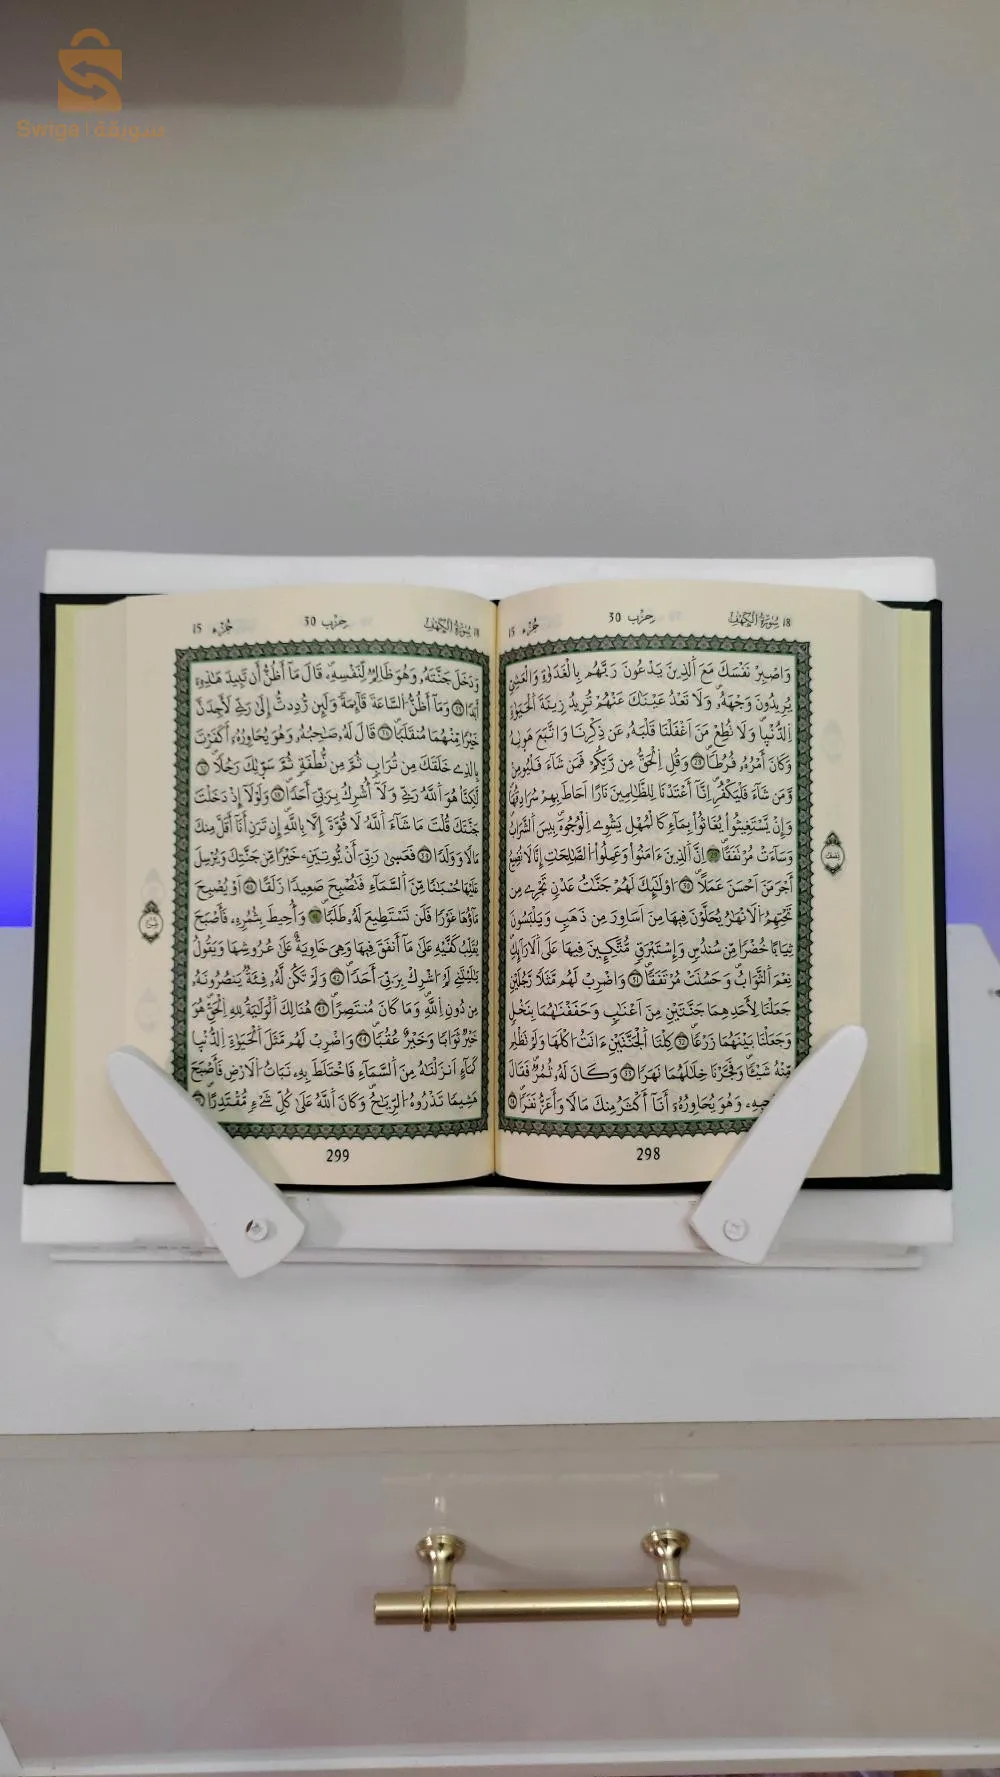 Swiga | سويقة
18 سُورَةُ الْكَهْفِ
حِزْب 30
جُزْء 15
وَاصْبِرْ نَفْسَكَ مَعَ اَ۬لذِينَ يَدْعُونَ رَبَّهُم بِالْغَدَوٰةِ وَالْعَشِيِّ
يُرِيدُونَ وَجْهَهُۥ وَلَا تَعْدُ عَيْنَٰكَ عَنْهُمْ تُرِيدُ زِينَةَ اَ۬لْحَيَوٰةِ
اِ۬لدُّنْيَا وَلَا تُطِعْ مَنَ اَغْفَلْنَا قَلْبَهُۥ عَن ذِكْرِنَا وَاتَّبَعَ هَوٜىٰهُ
وَكَانَ أَمْرُهُۥ فُرُطاٗ 28 وَقُلِ اِ۬لْحَقُّ مِن رَّبِّكُمْ فَمَن شَآءَ فَلْيُومِن
وَّمَن شَآءَ فَلْيَكْفُرِ اِنَّآ أَعْتَدْنَا لِلظَّٰلِمِينَ نَاراً اَحَاطَ بِهِمْ سُرَادِقُهَا
وَإِنْ يَّسْتَغِيثُواْ يُغَاثُواْ بِمَآءٖ كَالْمُهْلِ يَشْوِے اِ۬لْوُجُوهَ بِيسَ اَ۬لشَّرَابُ
وَسَآءَتْ مُرْتَفَقاً 29 اِنَّ اَ۬لذِينَ ءَامَنُواْ وَعَمِلُواْ اُ۬لصَّٰلِحَٰتِ إِنَّا لَا نُضِيعُ
أَجْرَ مَنَ اَحْسَنَ عَمَلاً 30 اُوْلَٰٓئِكَ لَهُمْ جَنَّٰتُ عَدْنٖ تَجْرِے مِن
تَحْتِهِمُ اُ۬لَانْهَٰرُ يُحَلَّوْنَ فِيهَا مِنَ اَسَاوِرَ مِن ذَهَبٖ وَيَلْبَسُونَ
ثِيَاباً خُضْراٗ مِّن سُندُسٖ وَإِسْتَبْرَقٖ مُّتَّكِـِٕينَ فِيهَا عَلَى اَ۬لَارَآئِكِ
نِعْمَ اَ۬لثَّوَابُ وَحَسُنَتْ مُرْتَفَقاٗ 31 وَاضْرِبْ لَهُم مَّثَلاٗ رَّجُلَيْنِ
جَعَلْنَا لِأَحَدِهِمَا جَنَّتَيْنِ مِنَ اَعْنَٰبٖ وَحَفَفْنَٰهُمَا بِنَخْلٖ
وَجَعَلْنَا بَيْنَهُمَا زَرْعاٗ 32 كِلْتَا اَ۬لْجَنَّتَيْنِ ءَاتَتُ ا۟كْلَهَا وَلَمْ تَظْلِم
مِّنْهُ شَيْـٔاٗ وَفَجَّرْنَا خِلَٰلَهُمَا نَهَراٗ 33 وَكَانَ لَهُۥ ثُمُرٞ فَقَالَ
وَهُوَ يُحَاوِرُهُۥٓ أَنَآ أَكْثَرُ مِنكَ مَالاٗ وَأَعَزُّ نَفَراٗ
298
18 سُورَةُ الْكَهْفِ
حِزْب 30
جُزْء 15
وَدَخَلَ جَنَّتَهُۥ وَهُوَ ظَالِمٞ لِّنَفْسِهِۦ قَالَ مَآ أَظُنُّ أَن تَبِيدَ هَٰذِهِۦٓ
أَبَداٗ وَمَآ أَظُنُّ اُ۬لسَّاعَةَ قَآئِمَةٗ وَلَئِن رُّدِدتُّ إِلَىٰ رَبِّے لَأَجِدَنَّ
خَيْراٗ مِّنْهُمَا مُنقَلَباٗ قَالَ لَهُۥ صَاحِبُهُۥ وَهُوَ يُحَاوِرُهُۥٓ أَكَفَرْتَ
بِالذِے خَلَقَكَ مِن تُرَابٖ ثُمَّ مِن نُّطْفَةٖ ثُمَّ سَوّٜىٰكَ رَجُلاٗ
لَّٰكِنَّا هُوَ اَ۬للَّهُ رَبِّے وَلَآ أُشْرِكُ بِرَبِّيَ أَحَداٗ وَلَوْلَآ إِذْ دَخَلْتَ
جَنَّتَكَ قُلْتَ مَا شَآءَ اَ۬للَّهُ لَا قُوَّةَ إِلَّا بِاللَّهِ إِن تَرَنِ أَنَآ أَقَلَّ مِنكَ
مَالاٗ وَوَلَداٗ فَعَسَىٰ رَبِّيَ أَنْ يُّوتِيَنِۦ خَيْراٗ مِّن جَنَّتِكَ وَيُرْسِلَ
عَلَيْهَا حُسْبَاناٗ مِّنَ اَ۬لسَّمَآءِ فَتُصْبِحَ صَعِيداٗ زَلَقاً اَوْ يُصْبِحَ
مَآؤُهَا غَوْراٗ فَلَن تَسْتَطِيعَ لَهُۥ طَلَباٗ وَأُحِيطَ بِثُمُرِهِۦ فَأَصْبَحَ
يُقَلِّبُ كَفَّيْهِ عَلَىٰ مَآ أَنفَقَ فِيهَا وَهْيَ خَاوِيَةٌ عَلَىٰ عُرُوشِهَا وَيَقُولُ
يَٰلَيْتَنِے لَمُ ا۟شْرِكْ بِرَبِّيَ أَحَداٗ 42 وَلَمْ تَكُن لَّهُۥ فِئَةٞ يَنصُرُونَهُۥ
مِن دُونِ اِ۬للَّهِ وَمَا كَانَ مُنتَصِراً 43 هُنَالِكَ اَ۬لْوَلَٰيَةُ لِلهِ اِ۬لْحَقِّ هُوَ
خَيْرٞ ثَوَاباٗ وَخَيْرٌ عُقُباٗ 44 وَاضْرِبْ لَهُم مَّثَلَ اَ۬لْحَيَوٰةِ اِ۬لدُّنْيَا
كَمَآءٍ اَنزَلْنَٰهُ مِنَ اَ۬لسَّمَآءِ فَاخْتَلَطَ بِهِۦ نَبَاتُ اُ۬لَارْضِ فَأَصْبَحَ
هَشِيماٗ تَذْرُوهُ اُ۬لرِّيَٰحُ وَكَانَ اَ۬للَّهُ عَلَىٰ كُلِّ شَےْءٖ مُّقْتَدِراً
299